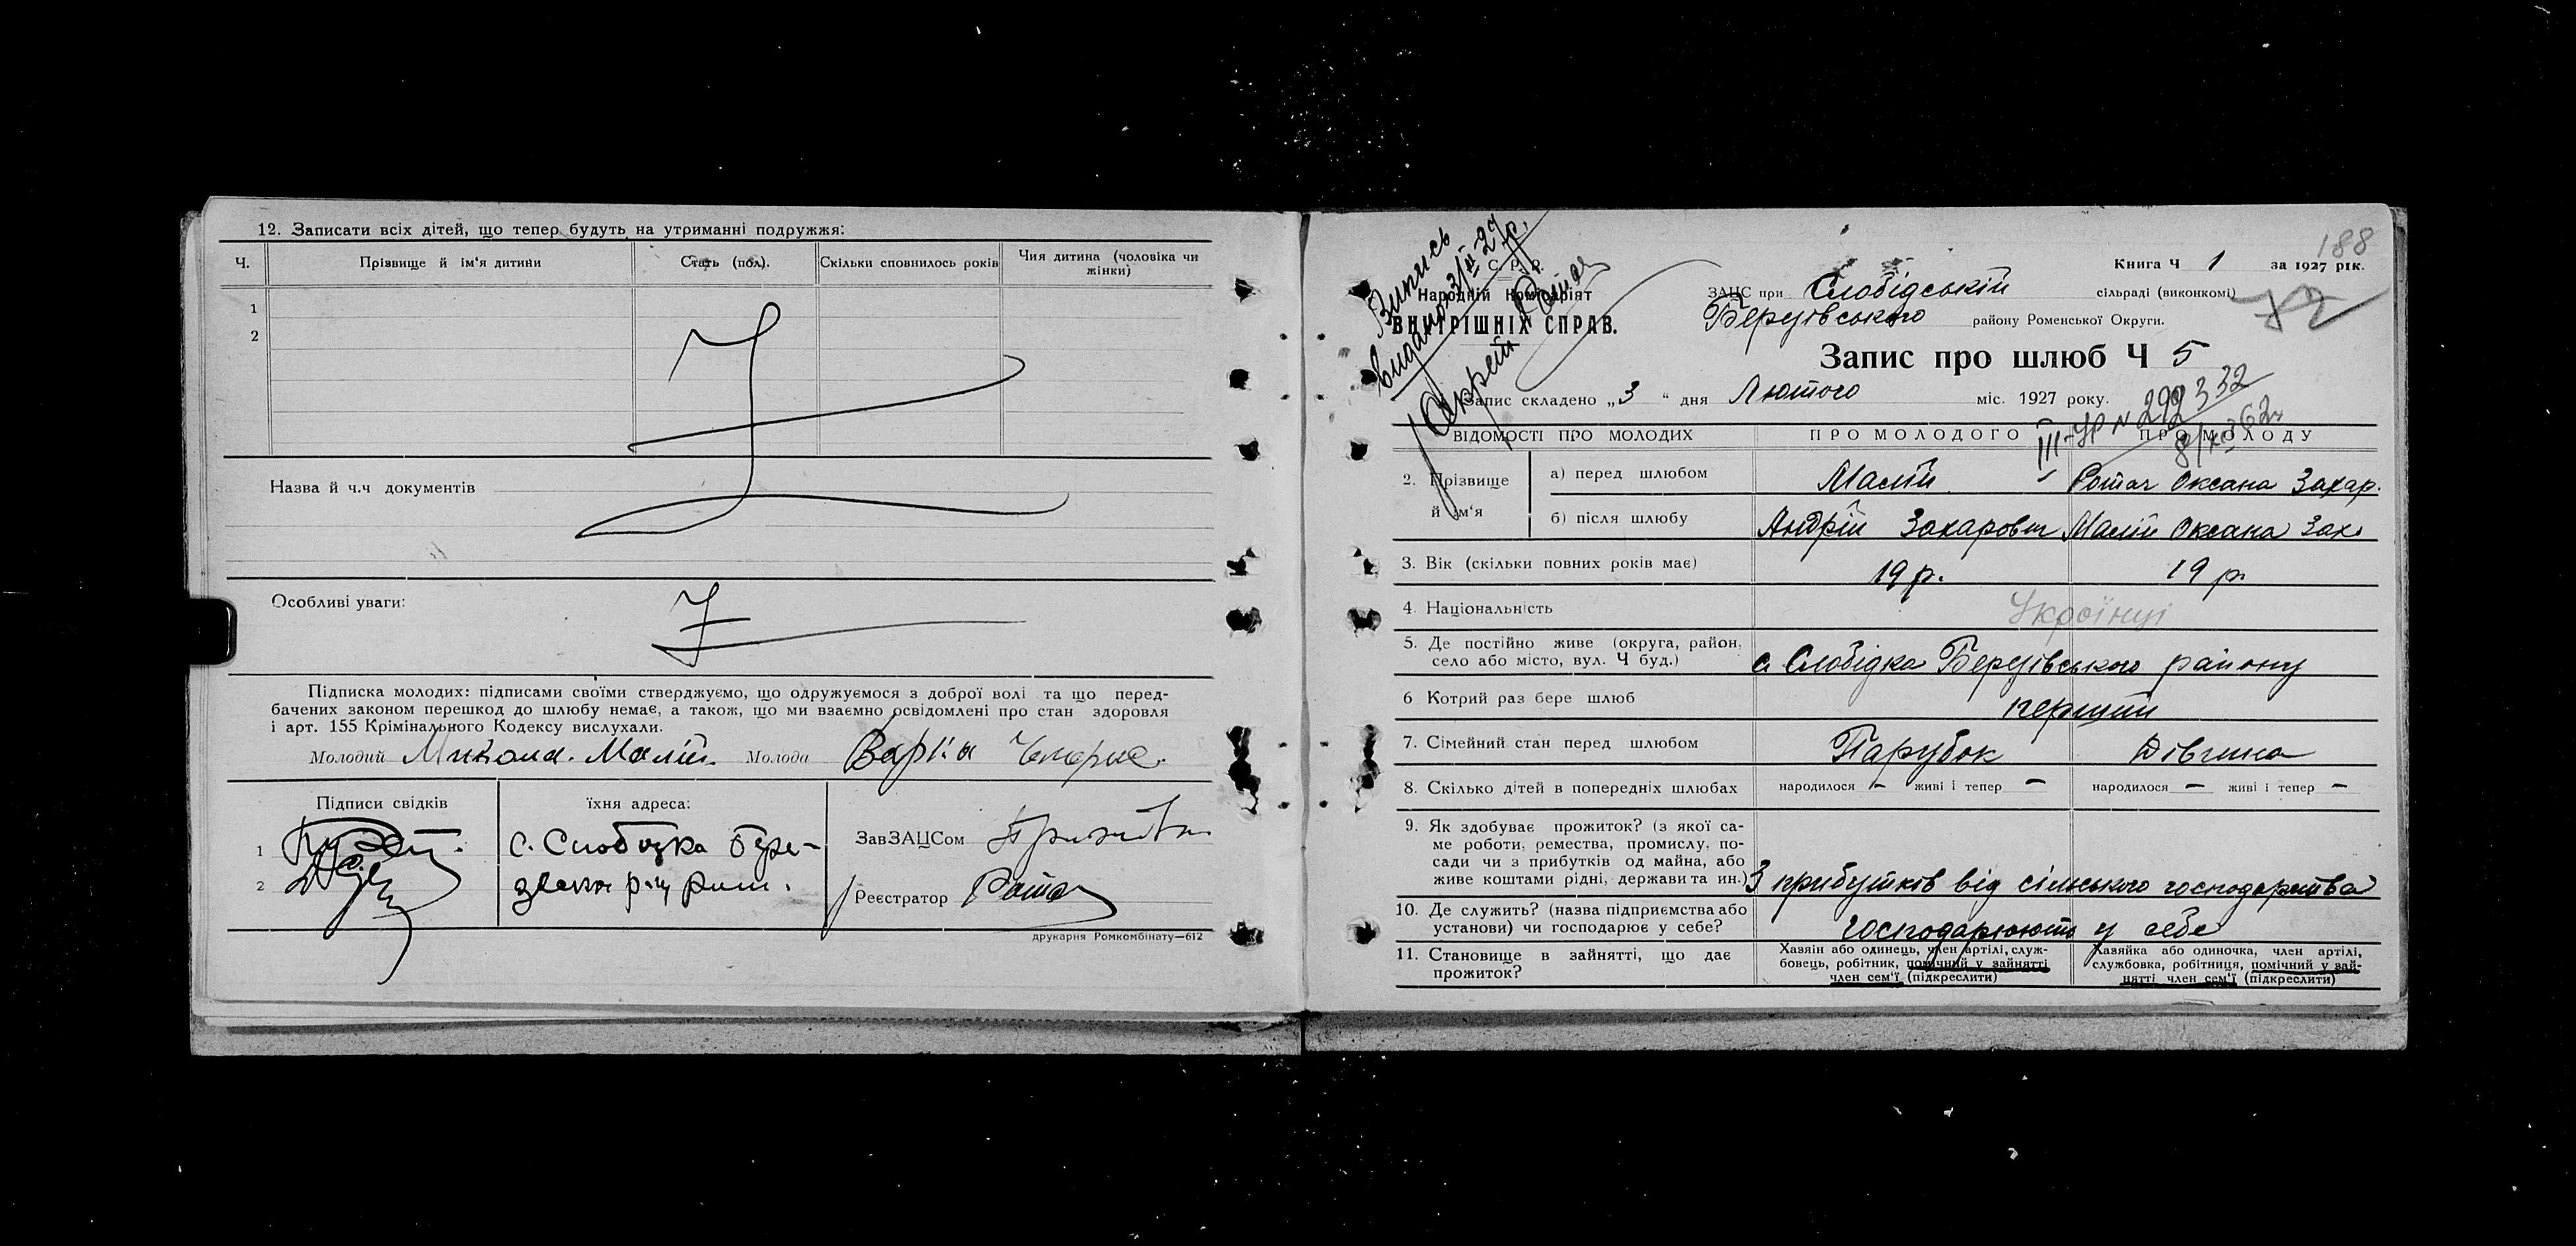 12. Записати всіх дітей, що тепер будуть на утриманні подружжя:
Ч. Прізвище й ім'я дитини Стать (пол). Скільки сповнилось років Чия дитина (чоловіка чи жінки)
1
2
Назва й ч.ч документів
Особливі уваги:
Підписка молодих: підписами своїми стверджуємо, що одружуємося з доброї волі та що перед-
бачених законом перешкод до шлюбу немає, а також, що ми взаємно освідомлені про стан здоровля
і арт. 155 Крімінального Кодексу вислухали.
Молодий Микола Малій. Молода Варка
Підписи свідків їхня адреса:
1 с. Слобідка Бере-
2
ЗавЗАЦСом
Реєстратор Ротач
друкарня Ромкомбінату—612
188
Випись
видано 3/II-27р.
Ротач
С. Р. Р.
Народній Комісаріят
ВНУТРІШНІХ СПРАВ.
Книга Ч 1 за 1927 рік.
ЗАЦС при Слобідській сільраді (виконкомі)
Березівського району Роменської Округи.
72
Запис про шлюб Ч 5
Запис складено „3" дня Лютого міс. 1927 року.
ВІДОМОСТІ ПРО МОЛОДИХ ПРО МОЛОДОГО ПРО МОЛОДУ
2. Прізвище й ім'я а) перед шлюбом Малій Ротач Оксана Захар.
б) після шлюбу Андрій Захарович Малій Оксана Зах.
3. Вік (скільки повних років має) 19 р. 19 р.
4. Національність Українці
5. Де постійно живе (округа, район,
село або місто, вул. Ч буд.) с. Слобідка Березівського району
6 Котрий раз бере шлюб перший
7. Сімейний стан перед шлюбом Парубок Дівчина
8. Скілько дітей в попередніх шлюбах народилося — живі і тепер — народилося — живі і тепер —
9. Як здобуває прожиток? (з якої са-
ме роботи, ремества, промислу, по-
сади чи з прибутків од майна, або
живе коштами рідні, держави та ин.) З прибутків від сільського господарства
10. Де служить? (назва підприємства або
установи) чи господарює у себе? господарюють у себе
11. Становище в зайнятті, що дає
прожиток?
Хазяін або одинець, член артілі, служ-
бовець, робітник, помічний у зайнятті
член сем'ї (підкреслити)
Хазяйка або одиночка, член артілі,
службовка, робітниця, помічний у зай-
нятті член сем'ї (підкреслити)